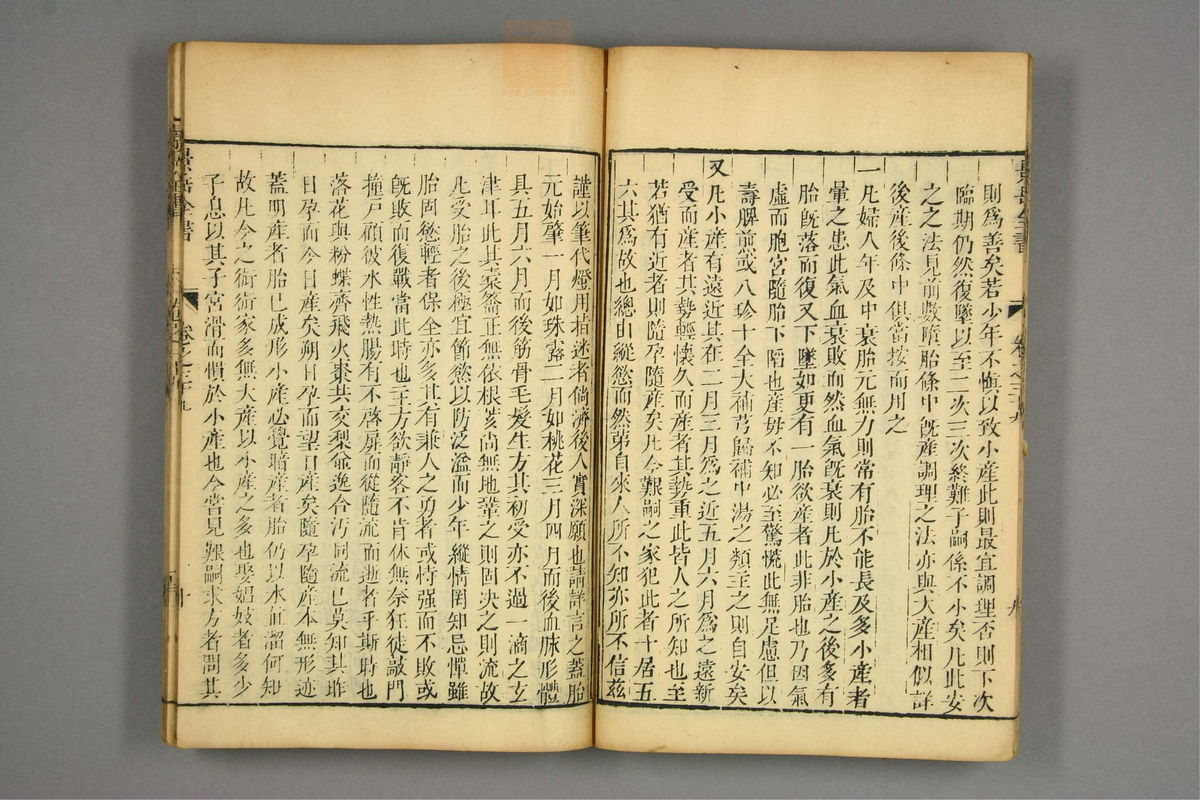 則爲善矣若少年不慎以致小産此則最宜調理否則下次
臨期仍然復墜以至二次三次終難子嗣係不小矣凡此安
之之法見前數墮胎條中旣産調理之法亦與大産相似詳
後産後條中俱當按而用之
一凡婦人年及中衰胎元無力則常有胎不能長及多小産者
暈之患此氣血衰敗而然血氣旣衰則凡於小産之後多有
胎旣落而復又下墜如更有一胎欲産者此非胎也乃因氣
虛而胞宮隨胎下陷也産母不知必至驚慌此無足慮但以
壽脾煎或八珍十全大補芎歸補中湯之類主之則自安矣
又凡小産有遠近其在二月三月爲之近五月六月爲之遠新
受而産者其勢輕懷久而産者其勢重此皆人之所知也至
若猶有近者則隨孕隨産矣凡今艱嗣之家犯此者十居五
六其爲故也總由縱慾而然第自來人所不知亦所不信兹
謹以筆代燈用指迷者倘濟後人實深願也請詳言之蓋胎
元始肇一月如珠露二月如桃花三月四月而後血脉形體
具五月六月而後筋骨毛髮生方其初受亦不過一滴之玄
津耳此其橐籥正無依根荄尚無地鞏之則固决之則流故
凡受胎之後極宜節慾以防泛溢而少年縱情罔知忌憚雖
胎固慾輕者保全亦多其有兼人之勇者或恃强而不敗或
旣敗而復戰當此時也主方欲靜客不肯休無奈狂徒敲門
撞戶顧彼水性熱腸有不啓扉而從隨流而逝者乎斯時也
落花與粉蝶齊飛火棗共交梨並逸合污同流已莫知其昨
日孕而今日産矣朔日孕而望日産矣隨孕隨産本無形迹
蓋明産者胎已成形小産必覺暗産者胎仍以水直溜何知
故凡今之衒衒家多無大産以小産之多也娶娼妓者多少
子息以其子宮滑而慣於小産也今嘗見艱嗣求方者問其
景岳全書
卷之三十九
九
景岳全書
卷之三十九
十